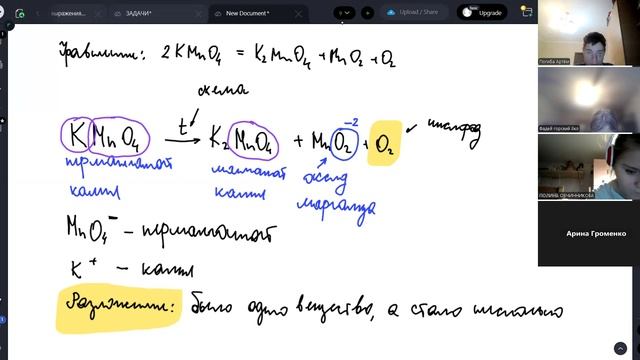 выражения... ЗАДАЧИ* New Document* Upload / Share Upgrade
Уравнение: 2 KMnO₄ = K₂MnO₄ + MnO₂ + O₂
схема
-2
KMnO₄ t → K₂MnO₄ + MnO₂ + O₂ кислород
перманганат манганат оксид
калия калия марганца
MnO₄⁻ – перманганат
K⁺ – калия
Разложение: было одно вещество, а стало несколько
Погиба Артём
ПОЛИНА ОВЧИННИКОВА
Арина Громенко